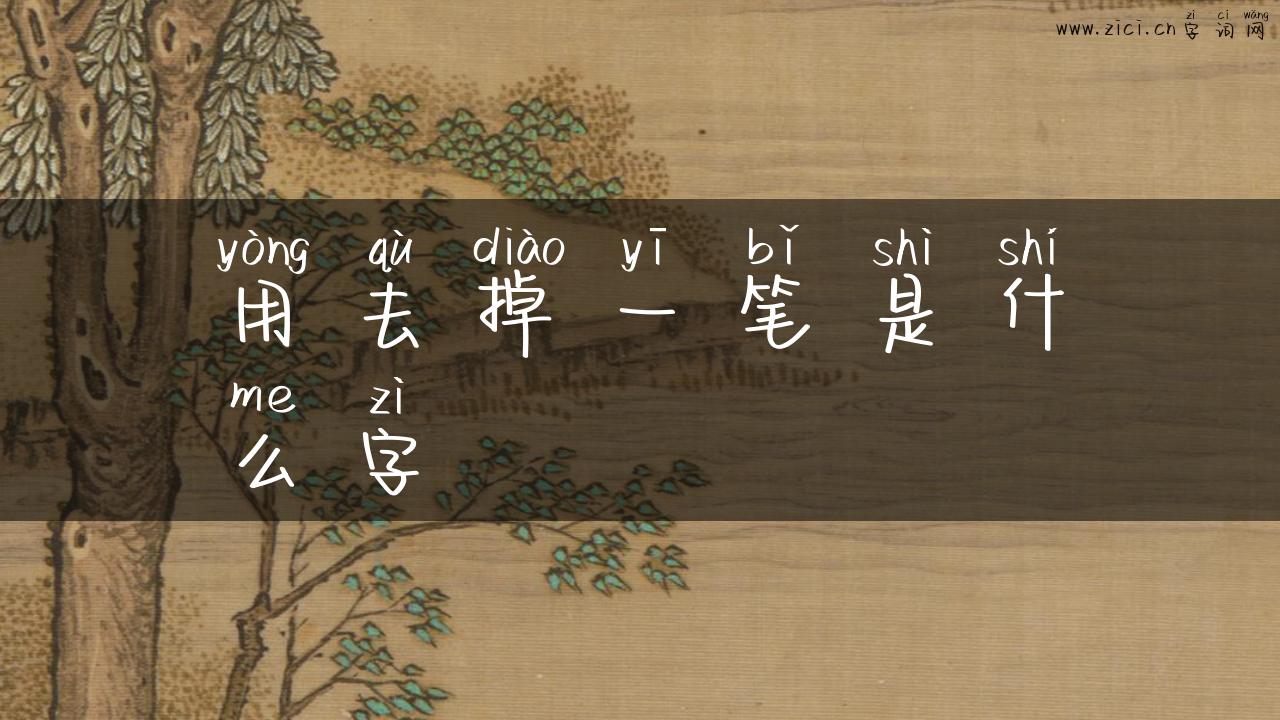 zì cí wǎng
www.zici.cn 字词网
yòng qù diào yī bǐ shì shí
用去掉一笔是什
me zì
么字